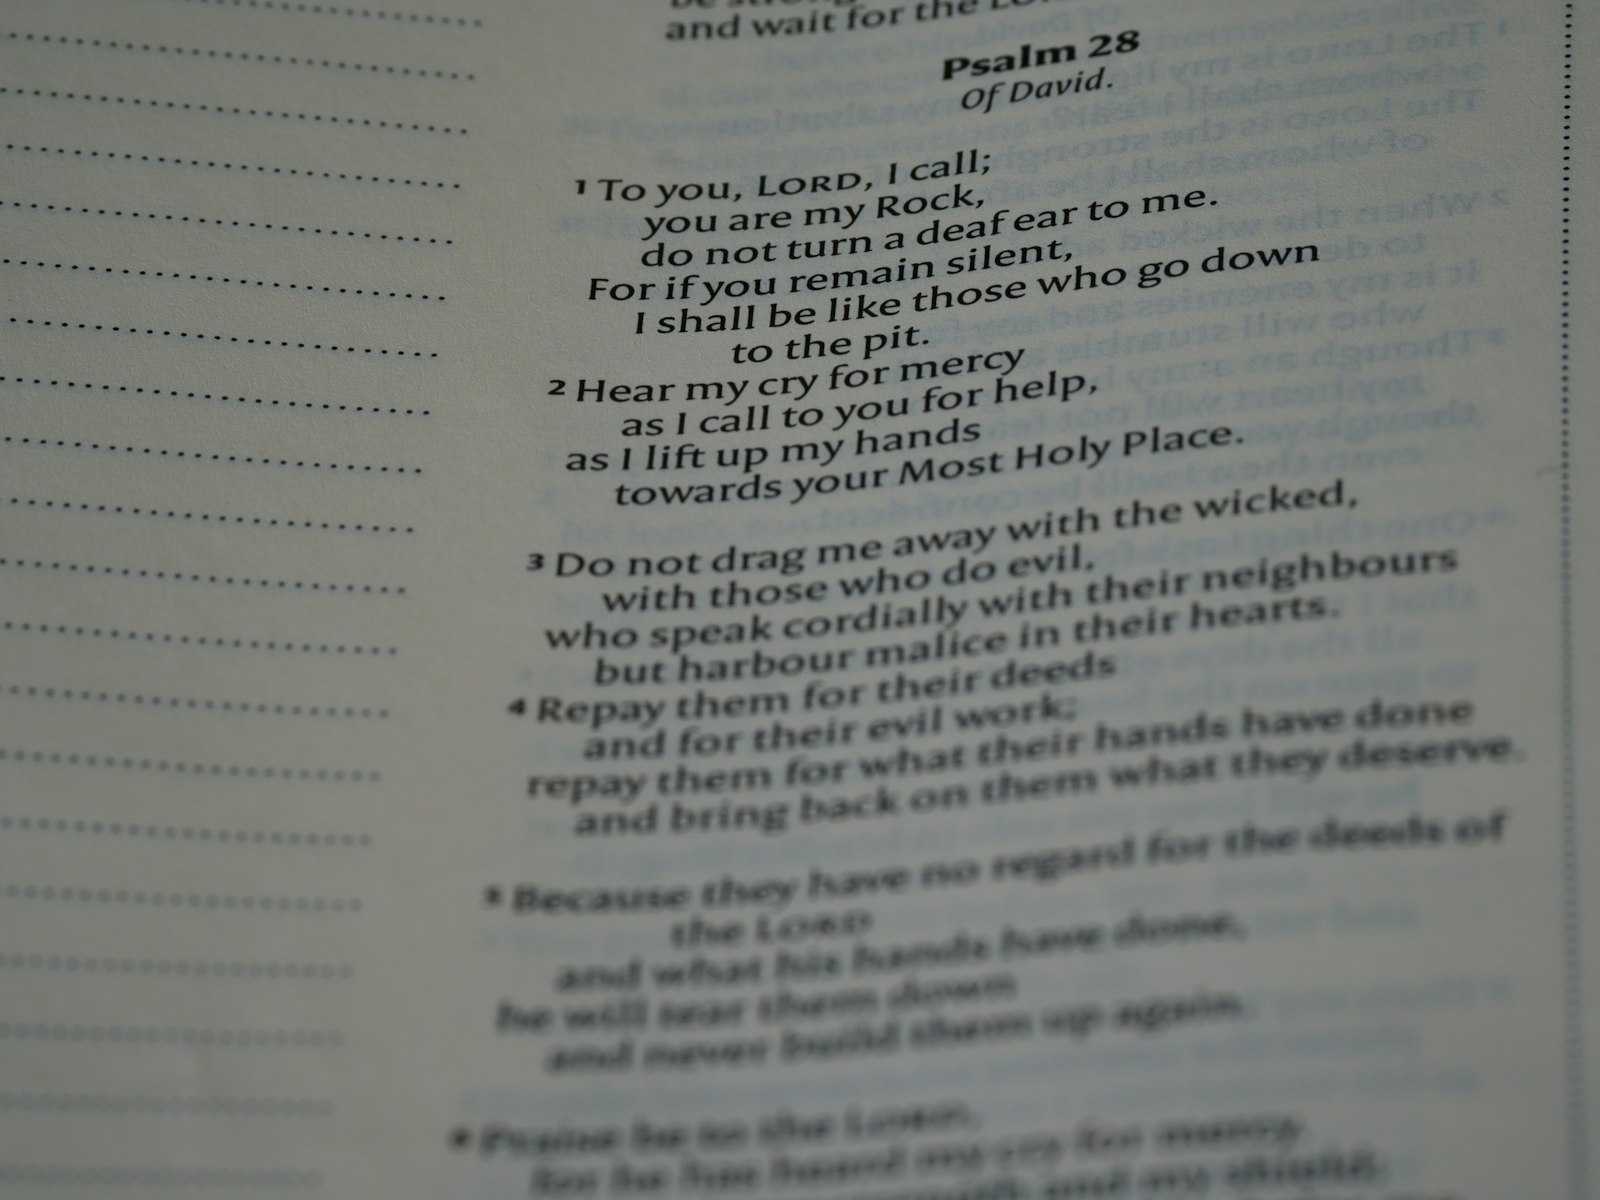 and wait for the LORD
Psalm 28
Of David.
1 To you, LORD, I call;
you are my Rock,
do not turn a deaf ear to me.
For if you remain silent,
I shall be like those who go down
to the pit.
2 Hear my cry for mercy
as I call to you for help,
as I lift up my hands
towards your Most Holy Place.
3 Do not drag me away with the wicked,
with those who do evil,
who speak cordially with their neighbours
but harbour malice in their hearts.
4 Repay them for their deeds
and for their evil work;
repay them for what their hands have done
and bring back on them what they deserve.
5 Because they have no regard for the deeds of
the LORD
and what his hands have done,
he will tear them down
and never build them up again.
6 Praise be to the LORD,
for he has heard my cry for mercy.
and my shield;